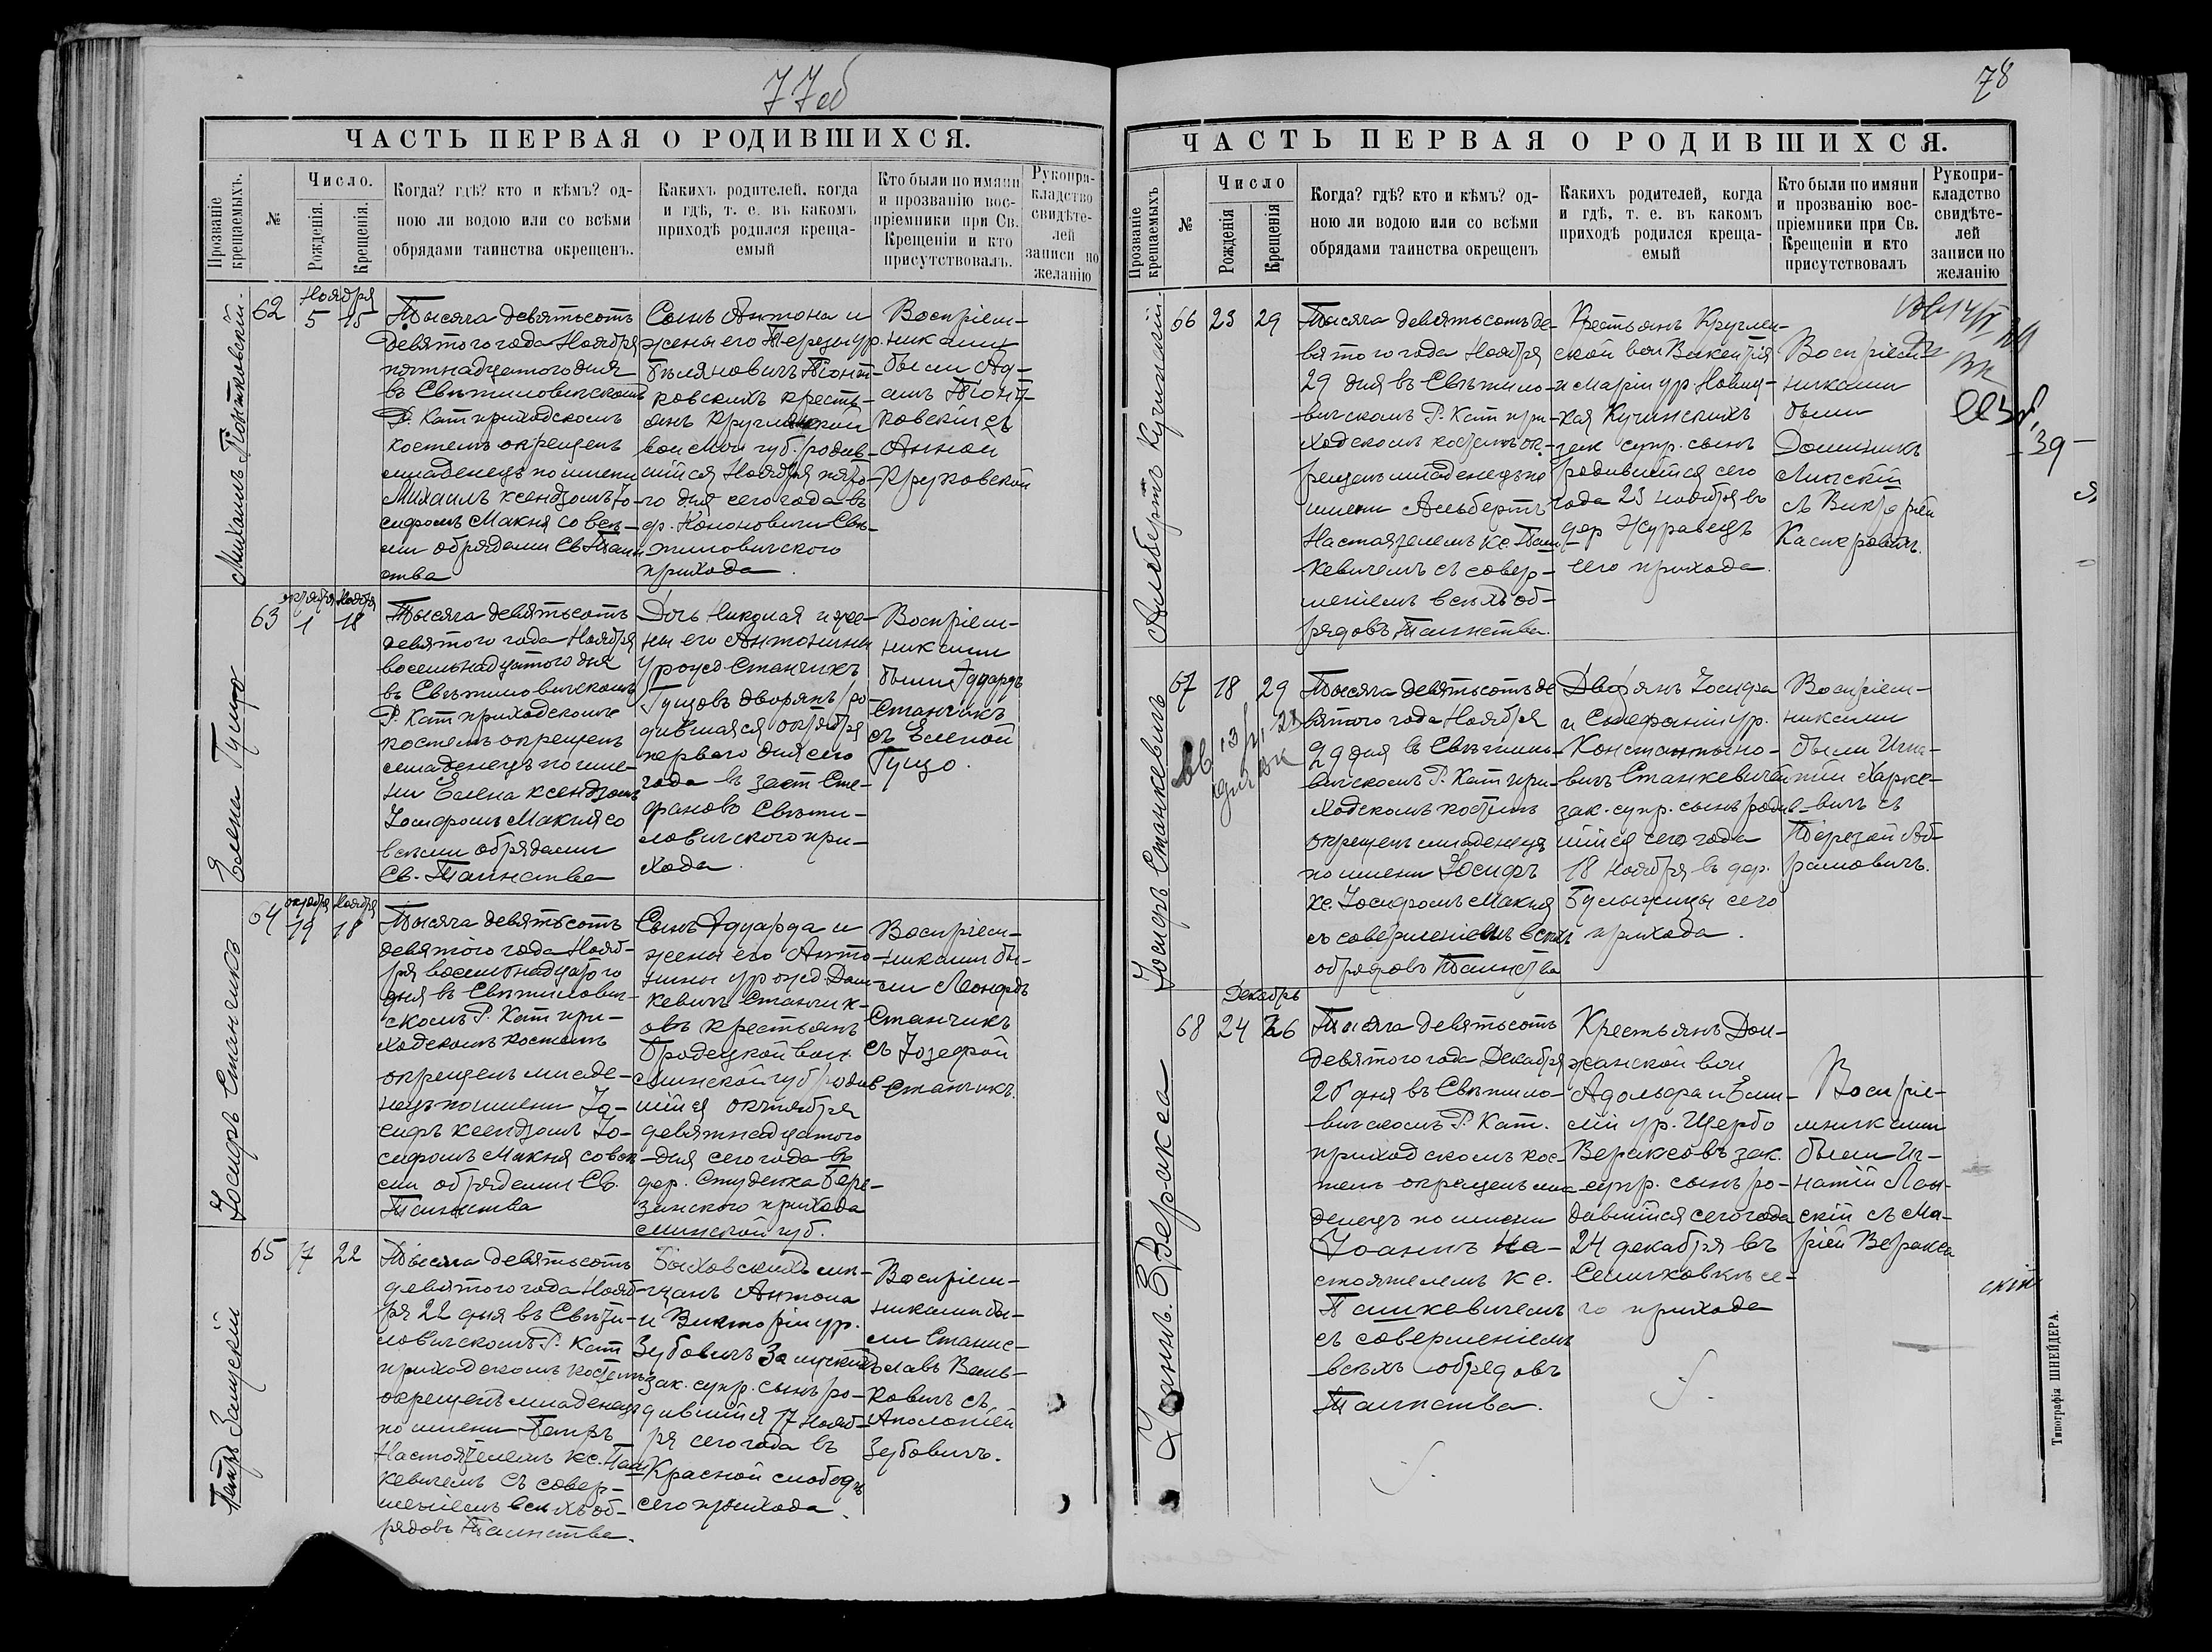 77об
ЧАСТЬ ПЕРВАЯ О РОДИВШИХСЯ.
Прозваніе
крещаемыхъ.
№
Число.
Рожденія.
Крещенія.
Когда? гдѣ? кто и кѣмъ? од-
ною ли водою или со всѣми
обрядами таинства окрещенъ.
Какихъ родителей, когда
и гдѣ, т. е. въ какомъ
приходѣ родился креща-
емый
Кто были по имяни
и прозванію вос-
пріемники при Св.
Крещеніи и кто
присутствовалъ.
Рукопри-
кладство
свидѣте-
лей
записи по
желанію
Михаилъ Піонтковскій.
62
Ноября
5 15
Тысяча девятьсотъ
девятого года Ноября
пятнадцатого дня
въ Свѣтиловичскомъ
Р. Кат приходскомъ
костелѣ окрещенъ
младенецъ по имени
Михаилъ ксендзомъ Іо-
сифомъ Макня со всѣ-
ми обрядами Св Таин
ства
Сынъ Антона и
жены его Терезы ур.
Бѣляновичъ Піонт-
ковскихъ кресть-
янъ Круглянской
вол Мог губ. родив-
шійся Ноября пято-
го дня сего года въ
др. Кононовичи Свѣ-
тиловичского
прихода.
Воспріем-
никами
были Ад-
амъ Піонт-
ковскій съ
Анной
Круковской
Елена Гущо
63
октября Ноября
1 18
Тысяча девятьсотъ
девятого года Ноября
восемьнадцатого дня
въ Свѣтиловичскомъ
Р. Кат приходскомъ
костелѣ окрещенъ
младенецъ по име-
ни Елена ксендзомъ
Іосифомъ Макня со
всѣми обрядами
Св. Таинства
Дочь Николая и же-
ны его Антонины
урожд Станчикъ
Гущовъ дворянъ ро
дившаяся октября
первого дня сего
года въ заст Сте-
фановъ Свѣти-
ловичского при-
хода.
Воспріем-
никами
были Эдуардъ
Станчикъ
съ Еленой
Гущо.
Іосифъ Станчикъ
64
октября Ноября
19 18
Тысяча девятьсотъ
девятого года Нояб-
ря восемьнадцатого
дня въ Свѣтилович-
скомъ Р. Кат при-
ходскомъ костелѣ
окрещенъ младе-
нецъ по имени Іо-
сифъ ксендзомъ Іо-
сифомъ Макня со всѣ
ми обрядами Св.
Таинства
Сынъ Эдуарда и
жены его Анто
нины урожд Даш
кевичъ Станчик-
овъ крестьянъ
Бродецкой вол.
Минской губ родив
шійся октября
девятнадцатого
дня сего года въ
дер. Студенка Бере-
зинского прихода
Минской губ.
Воспріем-
никами бы-
ли Леонардъ
Станчикъ
съ Іозефой
Станчикъ.
Петръ Залускій
65 17 22
Тысяча девятьсотъ
девятого года Нояб-
ря 22 дня въ Свѣти-
ловичскомъ Р. Кат
приходскомъ костелѣ
окрещенъ младенецъ
по имени Петръ
Настоятелемъ кс. Паш
кевичемъ съ совер-
шеніемъ всѣхъ об-
рядовъ Таинства.
Быховскихъ мѣ-
щанъ Антона
и Викторіи ур.
Зубовичъ Залускихъ
зак. супр. сынъ ро-
дившійся 17 Нояб-
ря сего года въ
Красной слободѣ
сего прихода.
Воспріем-
никами бы-
ли Станис-
лавъ
ковичъ съ
Аполоніей
Зубовичъ.
78
ЧАСТЬ ПЕРВАЯ О РОДИВШИХСЯ.
Прозваніе
крещаемыхъ
№
Число
Рожденія
Крещенія
Когда? гдѣ? кто и кѣмъ? од-
ною ли водою или со всѣми
обрядами таинства окрещенъ
Какихъ родителей, когда
и гдѣ, т. е. въ какомъ
приходѣ родился креща-
емый
Кто были по имяни
и прозванію вос-
пріемники при Св.
Крещеніи и кто
присутствовалъ
Рукопри-
кладство
свидѣте-
лей
записи по
желанію
Альбертъ Кучинскій.
66 23 29
Тысяча девятьсотъ де-
вятого года Ноября
29 дня въ Свѣтило-
вичскомъ Р. Кат при-
ходскомъ костелѣ ок-
рещенъ младенецъ по
имени Альбертъ
Настоятелемъ кс. Паш-
кевичемъ съ совер-
шеніемъ всѣхъ об-
рядовъ Таинства.
Крестьянъ Круглян-
ской вол Викентія
и Маріи ур.
Кучинскихъ
зак супр. сынъ
родившійся сего
года 23 ноября въ
дер Журавецъ
сего прихода.
Воспріем-
никами
были
Доминикъ
съ Викторіей
Касперовичъ.
39
Іосифъ Станкевичъ
67 18 29
Тысяча девятьсотъ де
вятого года Ноября
29 дня въ Свѣтило-
вичскомъ Р. Кат при-
ходскомъ костелѣ
окрещенъ младенецъ
по имени Іосифъ
кс. Іосифомъ Макня
съ совершеніемъ всѣхъ
обрядовъ Таинства
Дворянъ Іосифа
и Стефаніи ур.
Константино-
вичъ Станкевичей
зак. супр. сынъ родив-
шійся сего года
18 ноября въ дер.
Булыжицы сего
прихода.
Воспріем-
никами
были Игна-
тій Харке-
вичъ съ
Терезой Аб-
рамовичъ.
Іоаннъ Веракса
68
Декабрь
24 26
Тысяча девятьсотъ
девятого года Декабря
26 дня въ Свѣтило-
вичскомъ Р. Кат.
приходскомъ кос-
телѣ окрещенъ мла
денецъ по имени
Іоаннъ На-
стоятелемъ кс.
Пашкевичемъ
съ совершеніемъ
всѣхъ обрядовъ
Таинства.
Крестьянъ Дол-
жанской вол
Адольфа и Эми-
ліи ур. Щербо
Вераксовъ зак.
супр. сынъ ро-
дившійся сего года
24 декабря въ
Семковкѣ се-
го прихода
Воспріе-
мниками
были Иг-
натій
скій съ Ма-
ріей Веракса
Типографія ШНЕЙДЕРА.